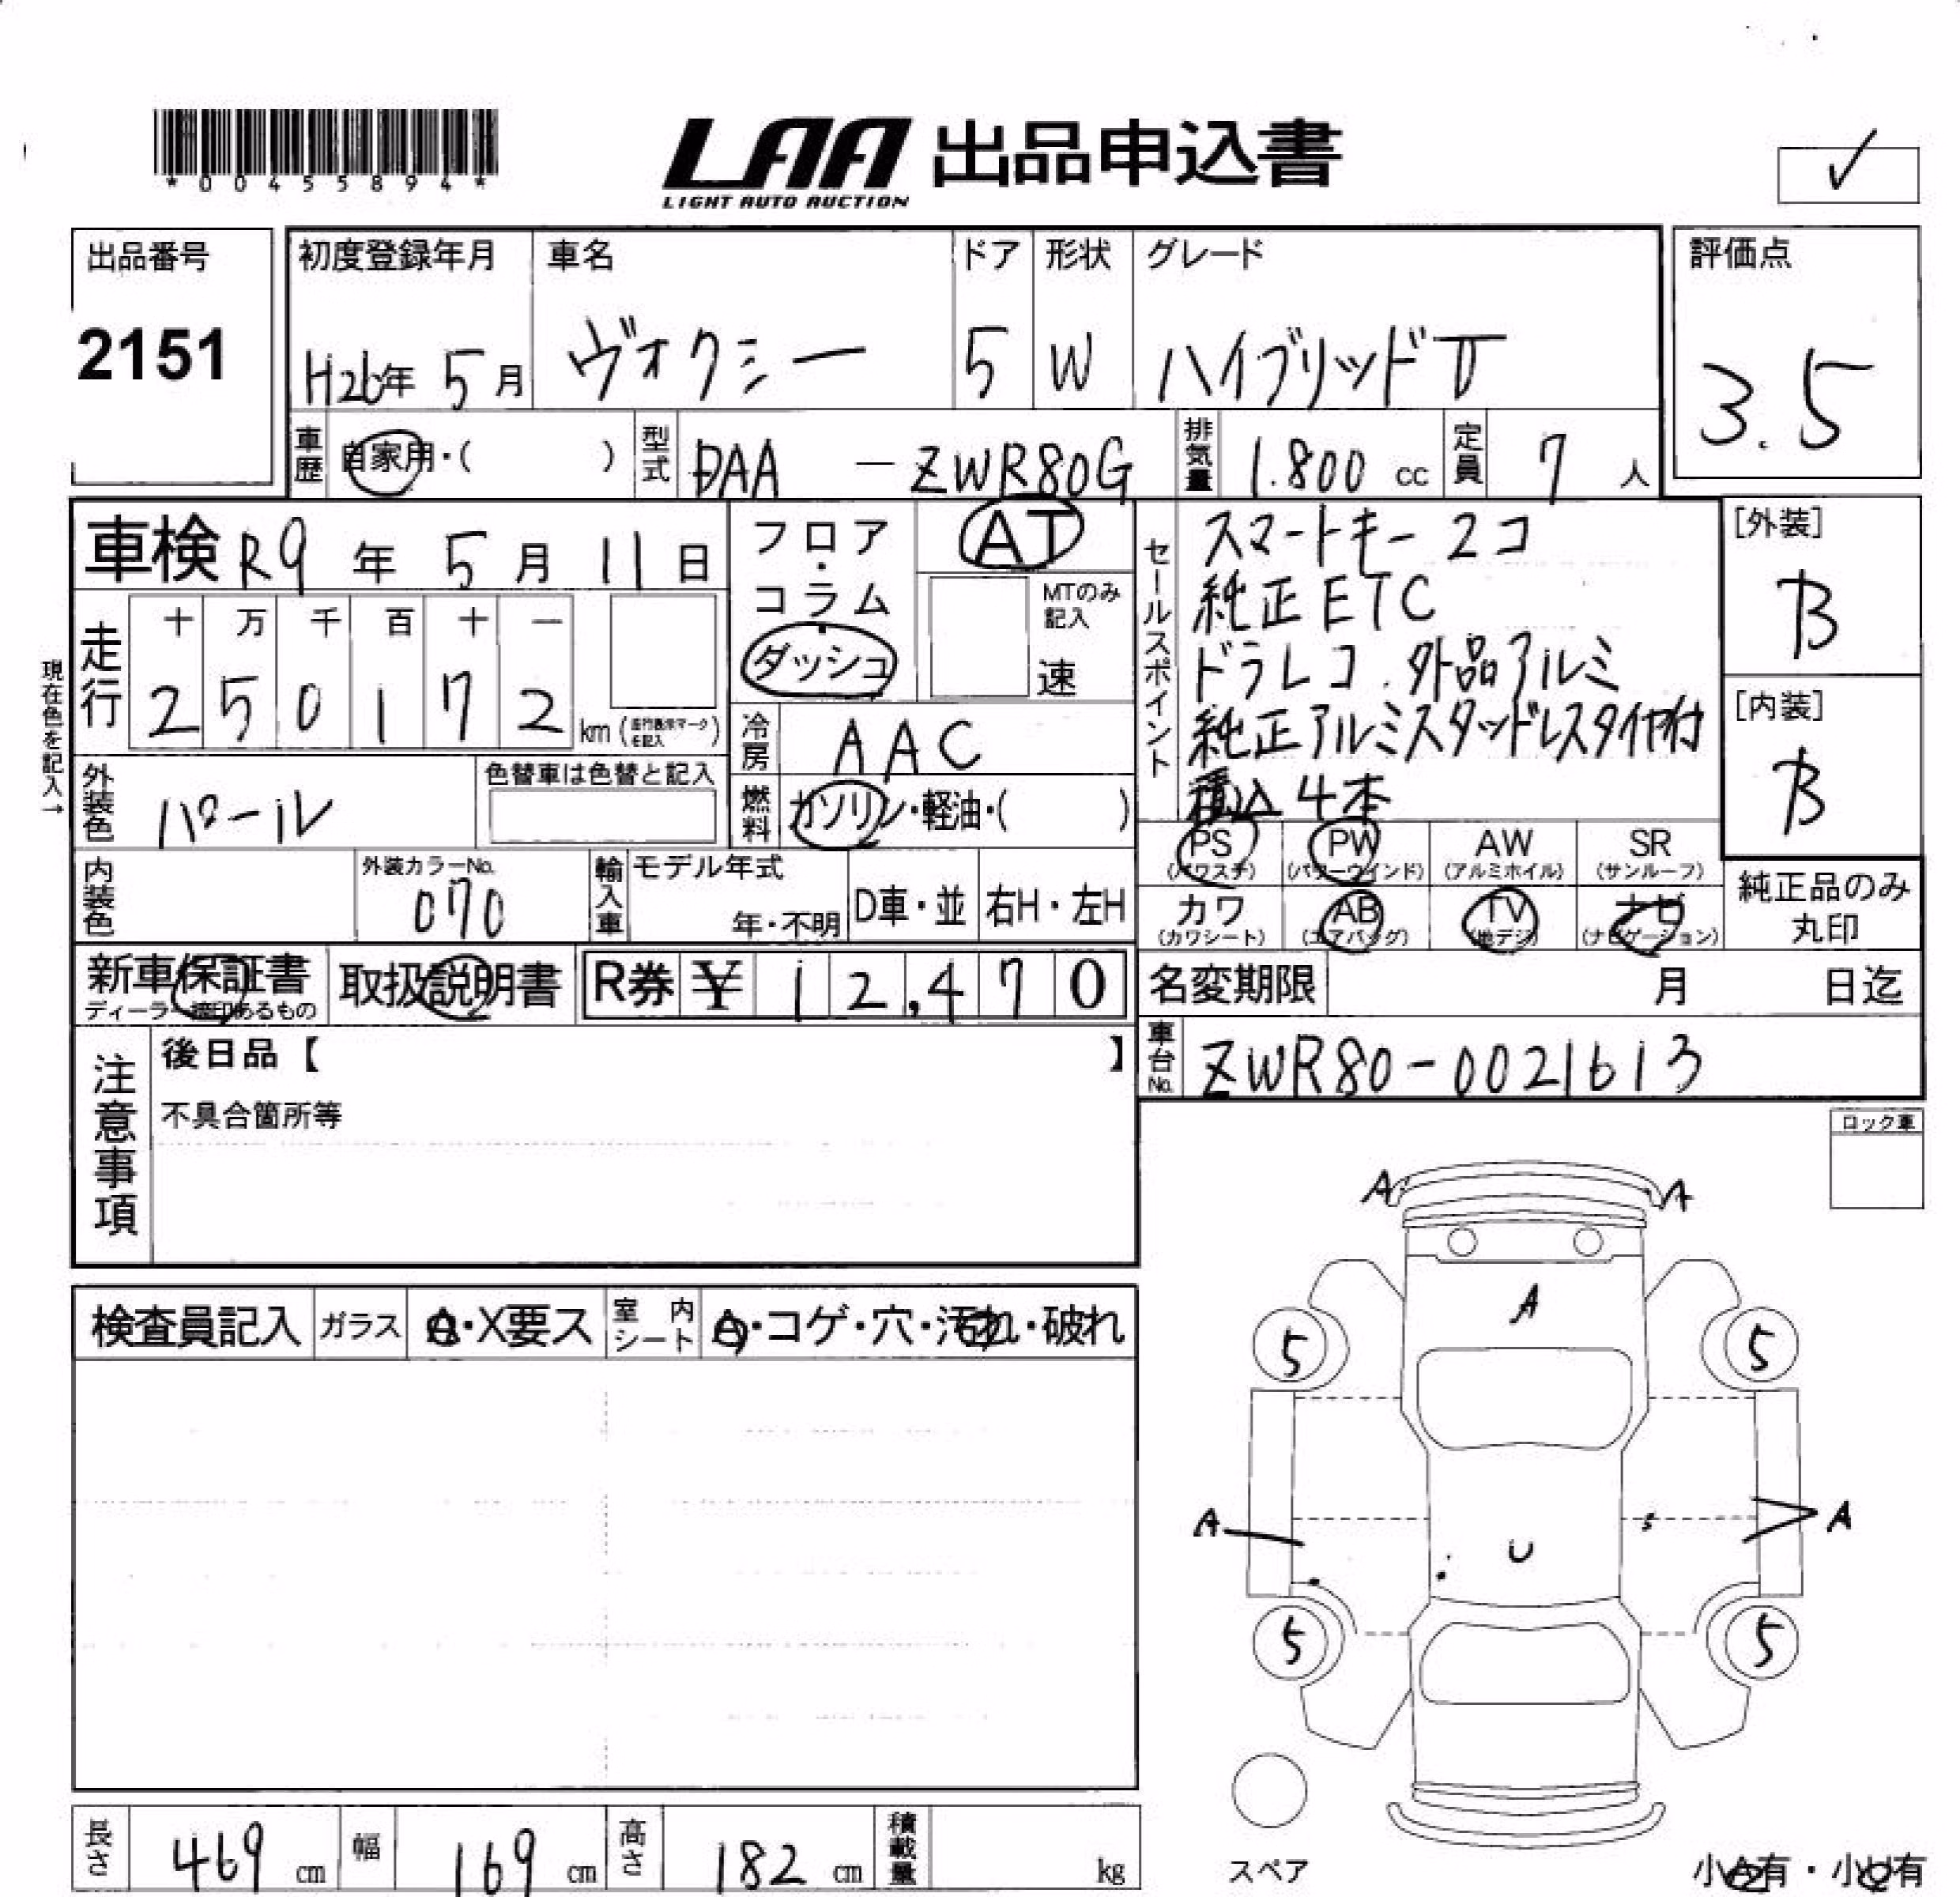 *00455894*
LAA 出品申込書
LIGHT AUTO AUCTION
✓
出品番号
2151
初度登録年月
H26年 5月
車名
ヴォクシー
ドア
5
形状
W
グレード
ハイブリッドV
評価点
3.5
車歴 自家用・( )
型式 DAA - ZWR80G
排気量 1.800 cc
定員 7 人
車検 R9年 5月 11日
フロア・コラム・ダッシュ
AT
MTのみ記入
速
走行
十 万 千 百 十 一
2 5 0 1 7 2 km (走行表示マークを記入)
現在色を記入→
冷房 AAC
外装色 パール
色替車は色替と記入
燃料 ガソリン・軽油・( )
内装色
外装カラーNo.
070
輸入車
モデル年式
年・不明
D車・並
右H・左H
セールスポイント
スマートキー 2コ
純正ETC
ドラレコ.外品アルミ
純正アルミスタッドレスタイヤ付
積込4本
[外装]
B
[内装]
B
PS (パワステ)
PW (パワーウインド)
AW (アルミホイル)
SR (サンルーフ)
カワ (カワシート)
AB (エアバッグ)
TV (地デジ)
ナビ (ナビゲーション)
純正品のみ
丸印
新車保証書
ディーラー捺印あるもの
取扱説明書
R券 ¥ 12,470
名変期限 月 日迄
注意事項
後日品【 】
不具合箇所等
車台No. ZWR80-0021613
ロック車
検査員記入
ガラス
A・X要ス
室内シート
A・コゲ・穴・汚れ・破れ
A A
A
5 5
A A
U
s
5 5
スペア
小A有・小U有
長さ 469 cm
幅 169 cm
高さ 182 cm
積載量 kg